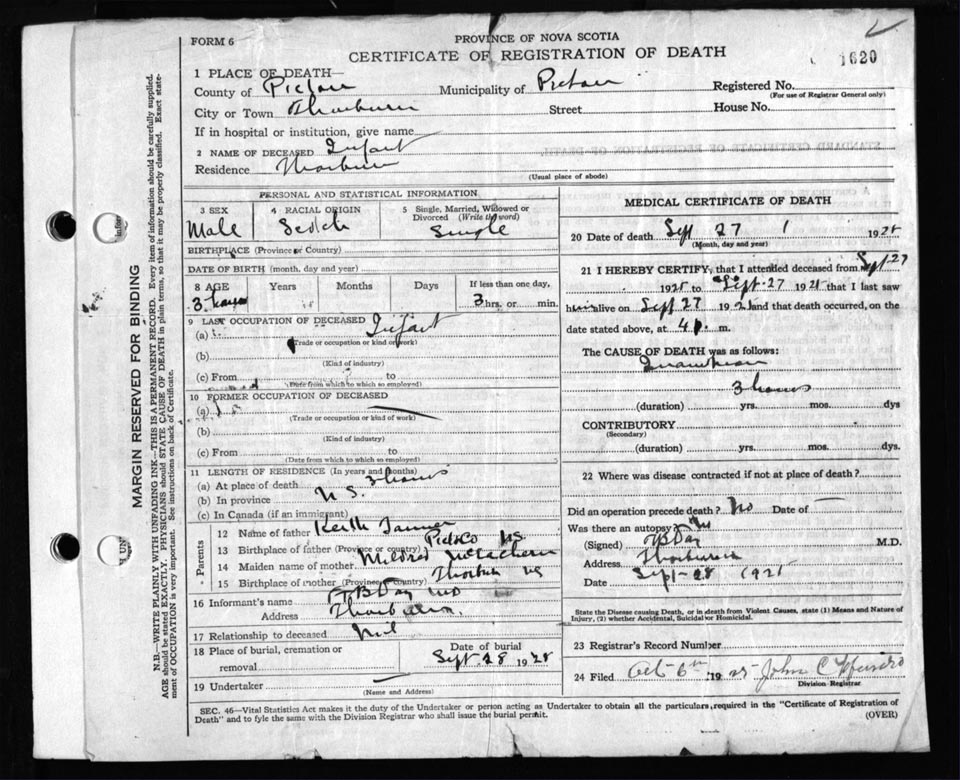 FORM 6
PROVINCE OF NOVA SCOTIA
CERTIFICATE OF REGISTRATION OF DEATH
1620
1 PLACE OF DEATH—
County of Pictou Municipality of Pictou Registered No.
(For use of Registrar General only)
City or Town Thorburn Street House No.
If in hospital or institution, give name
2 NAME OF DECEASED Infant
Residence Thorburn
(Usual place of abode)
MARGIN RESERVED FOR BINDING
N.B.—WRITE PLAINLY WITH UNFADING INK—THIS IS A PERMANENT RECORD. Every item of information should be carefully supplied.
AGE should be stated EXACTLY. PHYSICIANS should STATE CAUSE OF DEATH in plain terms, so that it may be properly classified. Exact state-
ment of OCCUPATION is very important. See instructions on back of Certificate.
PERSONAL AND STATISTICAL INFORMATION
3 SEX
Male
4 RACIAL ORIGIN
Scotch
5 Single, Married, Widowed or
Divorced (Write the word)
Single
BIRTHPLACE (Province or Country)
DATE OF BIRTH (month, day and year)
8 AGE Years Months Days If less than one day,
3 hours
3 hrs. or min.
9 LAST OCCUPATION OF DECEASED Infant
(a)
(Trade or occupation or kind of work)
(b)
(Kind of industry)
(c) From to
(Date from which to which so employed)
10 FORMER OCCUPATION OF DECEASED
(a)
(Trade or occupation or kind of work)
(b)
(Kind of industry)
(c) From to
(Date from which to which so employed)
11 LENGTH OF RESIDENCE (In years and months)
(a) At place of death 3 hours
(b) In province N S.
(c) In Canada (if an immigrant)
Parents
12 Name of father Keith Tanner
13 Birthplace of father (Province or country) Pict Co NS
14 Maiden name of mother Mildred
15 Birthplace of mother (Province or country) Thorburn NS
16 Informant's name Day MD
Address Thorburn
17 Relationship to deceased Nil
18 Place of burial, cremation or
removal
Date of burial
Sept. 28 1925
19 Undertaker
(Name and Address)
MEDICAL CERTIFICATE OF DEATH
20 Date of death Sept 27 1925
(Month, day and year)
21 I HEREBY CERTIFY, that I attended deceased from Sept 27
1925 to Sept. 27 1925 that I last saw
him alive on Sept 27 1925 and that death occurred, on the
date stated above, at 4 p. m.
The CAUSE OF DEATH was as follows:
3 hours
(duration) yrs. mos. dys
CONTRIBUTORY
(Secondary)
(duration) yrs. mos. dys.
22 Where was disease contracted if not at place of death?
Did an operation precede death? No Date of
Was there an autopsy? No
(Signed) Day M.D.
Address Thorburn
Date Sept-28 1925
State the Disease causing Death, or in death from Violent Causes, state (1) Means and Nature of
Injury, (2) whether Accidental, Suicidal or Homicidal.
23 Registrar's Record Number
24 Filed Oct 6th 1925 John C
Division Registrar
SEC. 46—Vital Statistics Act makes it the duty of the Undertaker or person acting as Undertaker to obtain all the particulars, required in the "Certificate of Registration of
Death" and to fyle the same with the Division Registrar who shall issue the burial permit. (OVER)